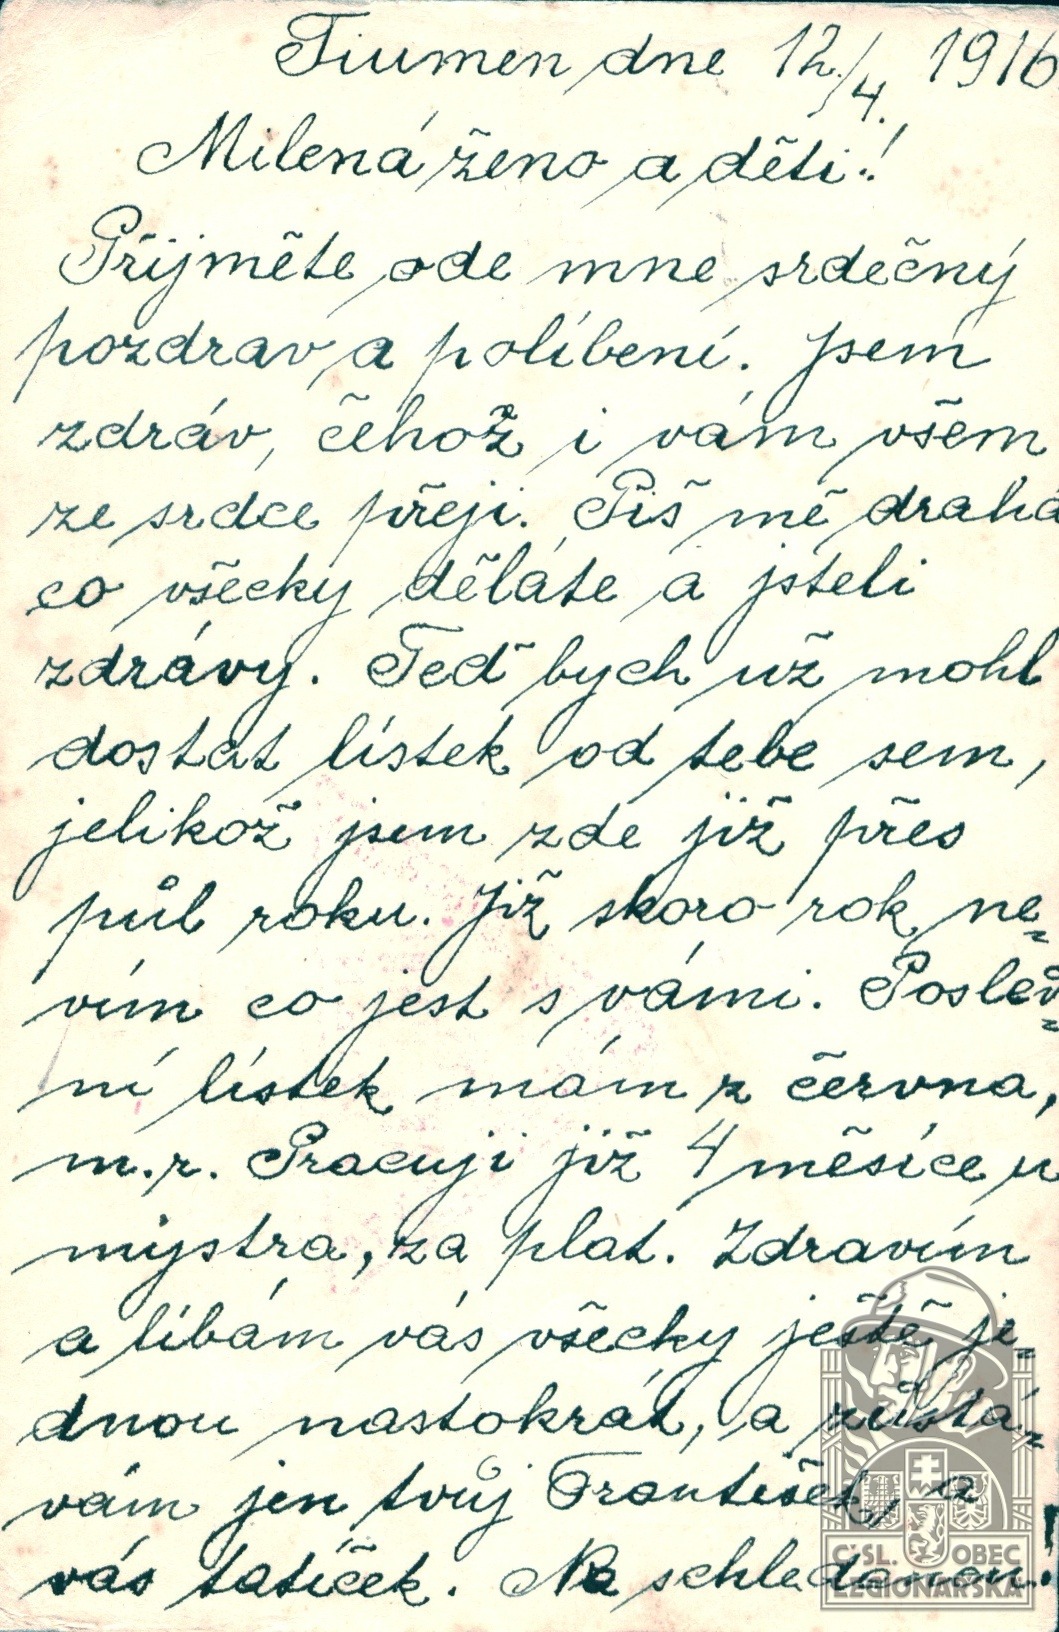 Tiumen dne 12./4. 1916
Milená ženo a děti!
Přijměte ode mne srdečný
pozdrav a políbení. Jsem
zdráv, čehož i vám všem
ze srdce přeji. Piš mě drahá
co všecky děláte a jsteli
zdrávy. Teď bych už mohl
dostat lístek od tebe sem,
jelikož jsem zde již přes
půl roku. Již skoro rok ne=
vím co jest s vámi. Posled=
ní lístek mám z června,
m.r. Pracuji již 4 měsíce u
mystra, za plat. Zdravím
a líbám vás všecky ještě je=
dnou nastokrát, a zůstá=
vám jen tvůj František, a
vás tatíček. Na schledanou!
ČSL. OBEC
LEGIONÁŘSKÁ